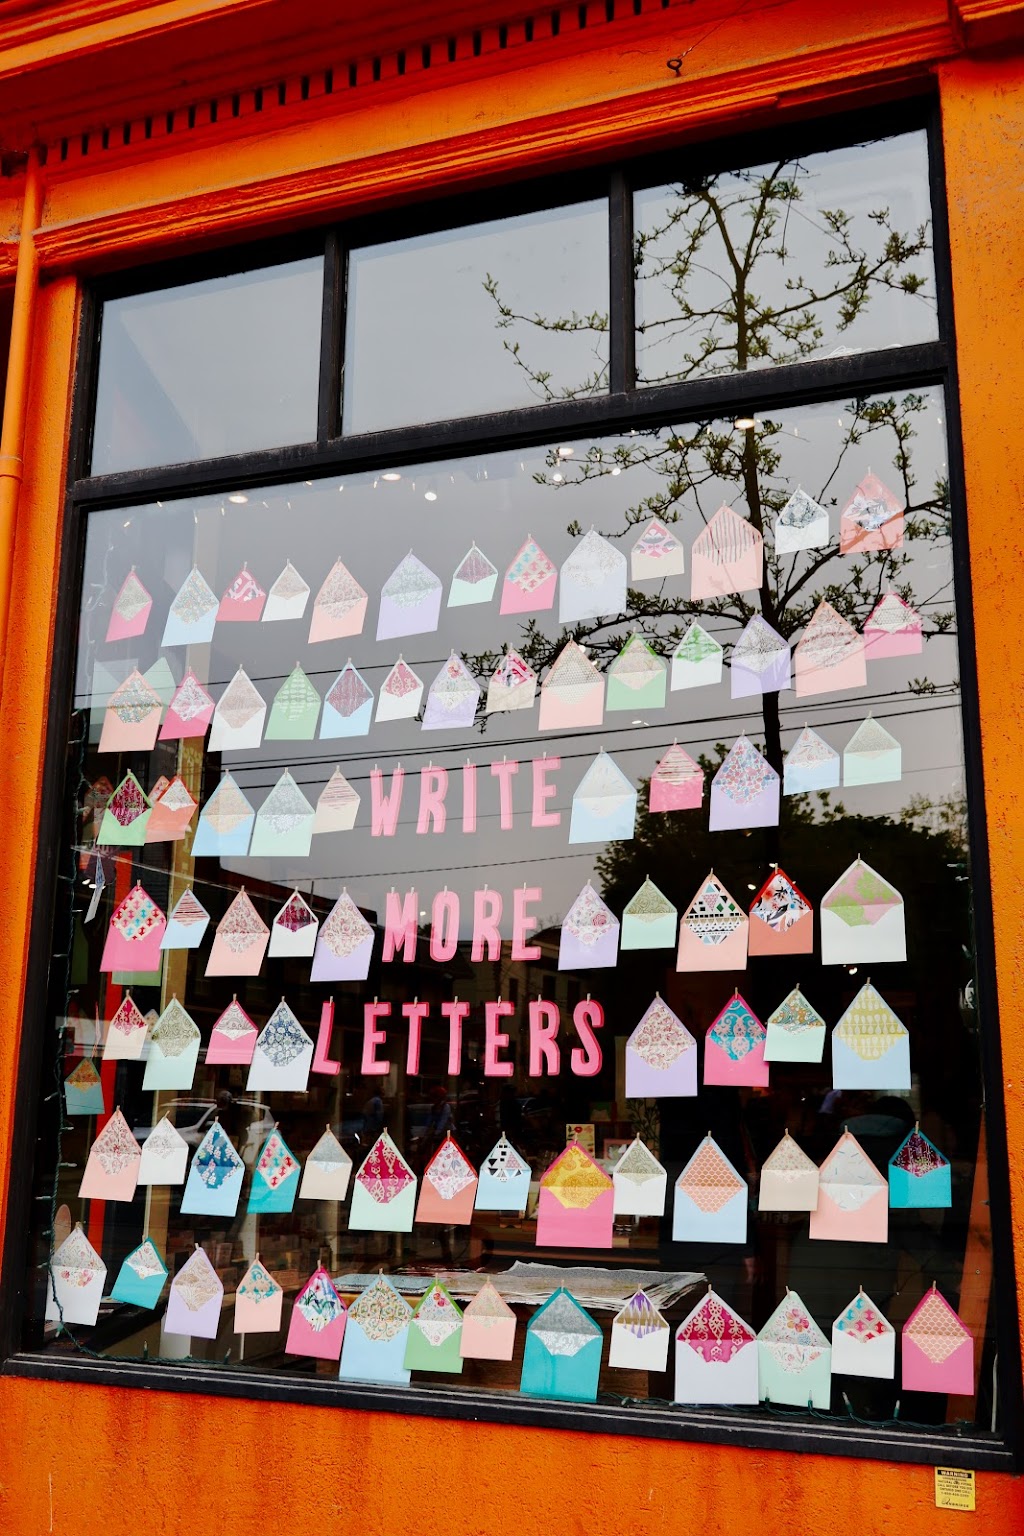 WRITE
MORE
LETTERS
WARNING